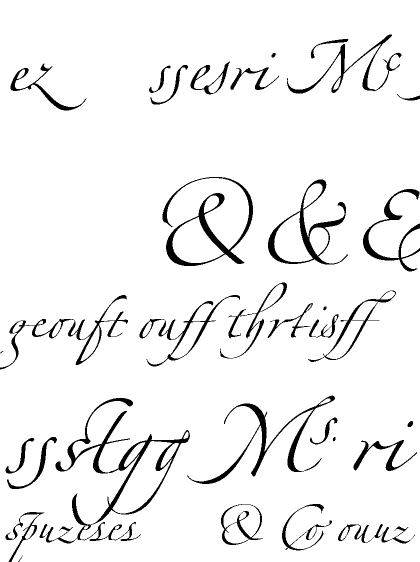 ez ssesri Mc
& & &
geouft ouff thrtisff
ri
spuzeses & Co ouuz